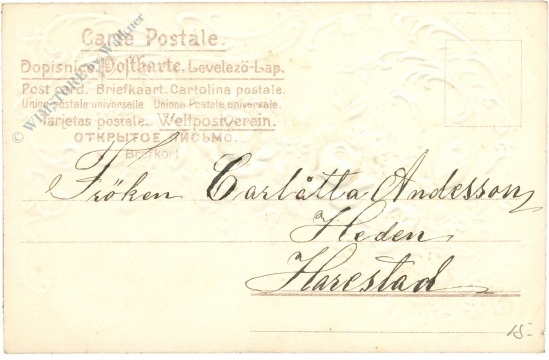 Carte Postale.
Dopisnice. Postkarte. Levelező-Lap.
Post card. Briefkaart. Cartolina postale.
Union postale universelle Unione Postale universale.
Tarjetas postale. Weltpostverein.
ОТКРЫТОЕ ПИСЬМО.
Brefkort
Fröken Carlåtta Andesson
Heden
Harestad
15-